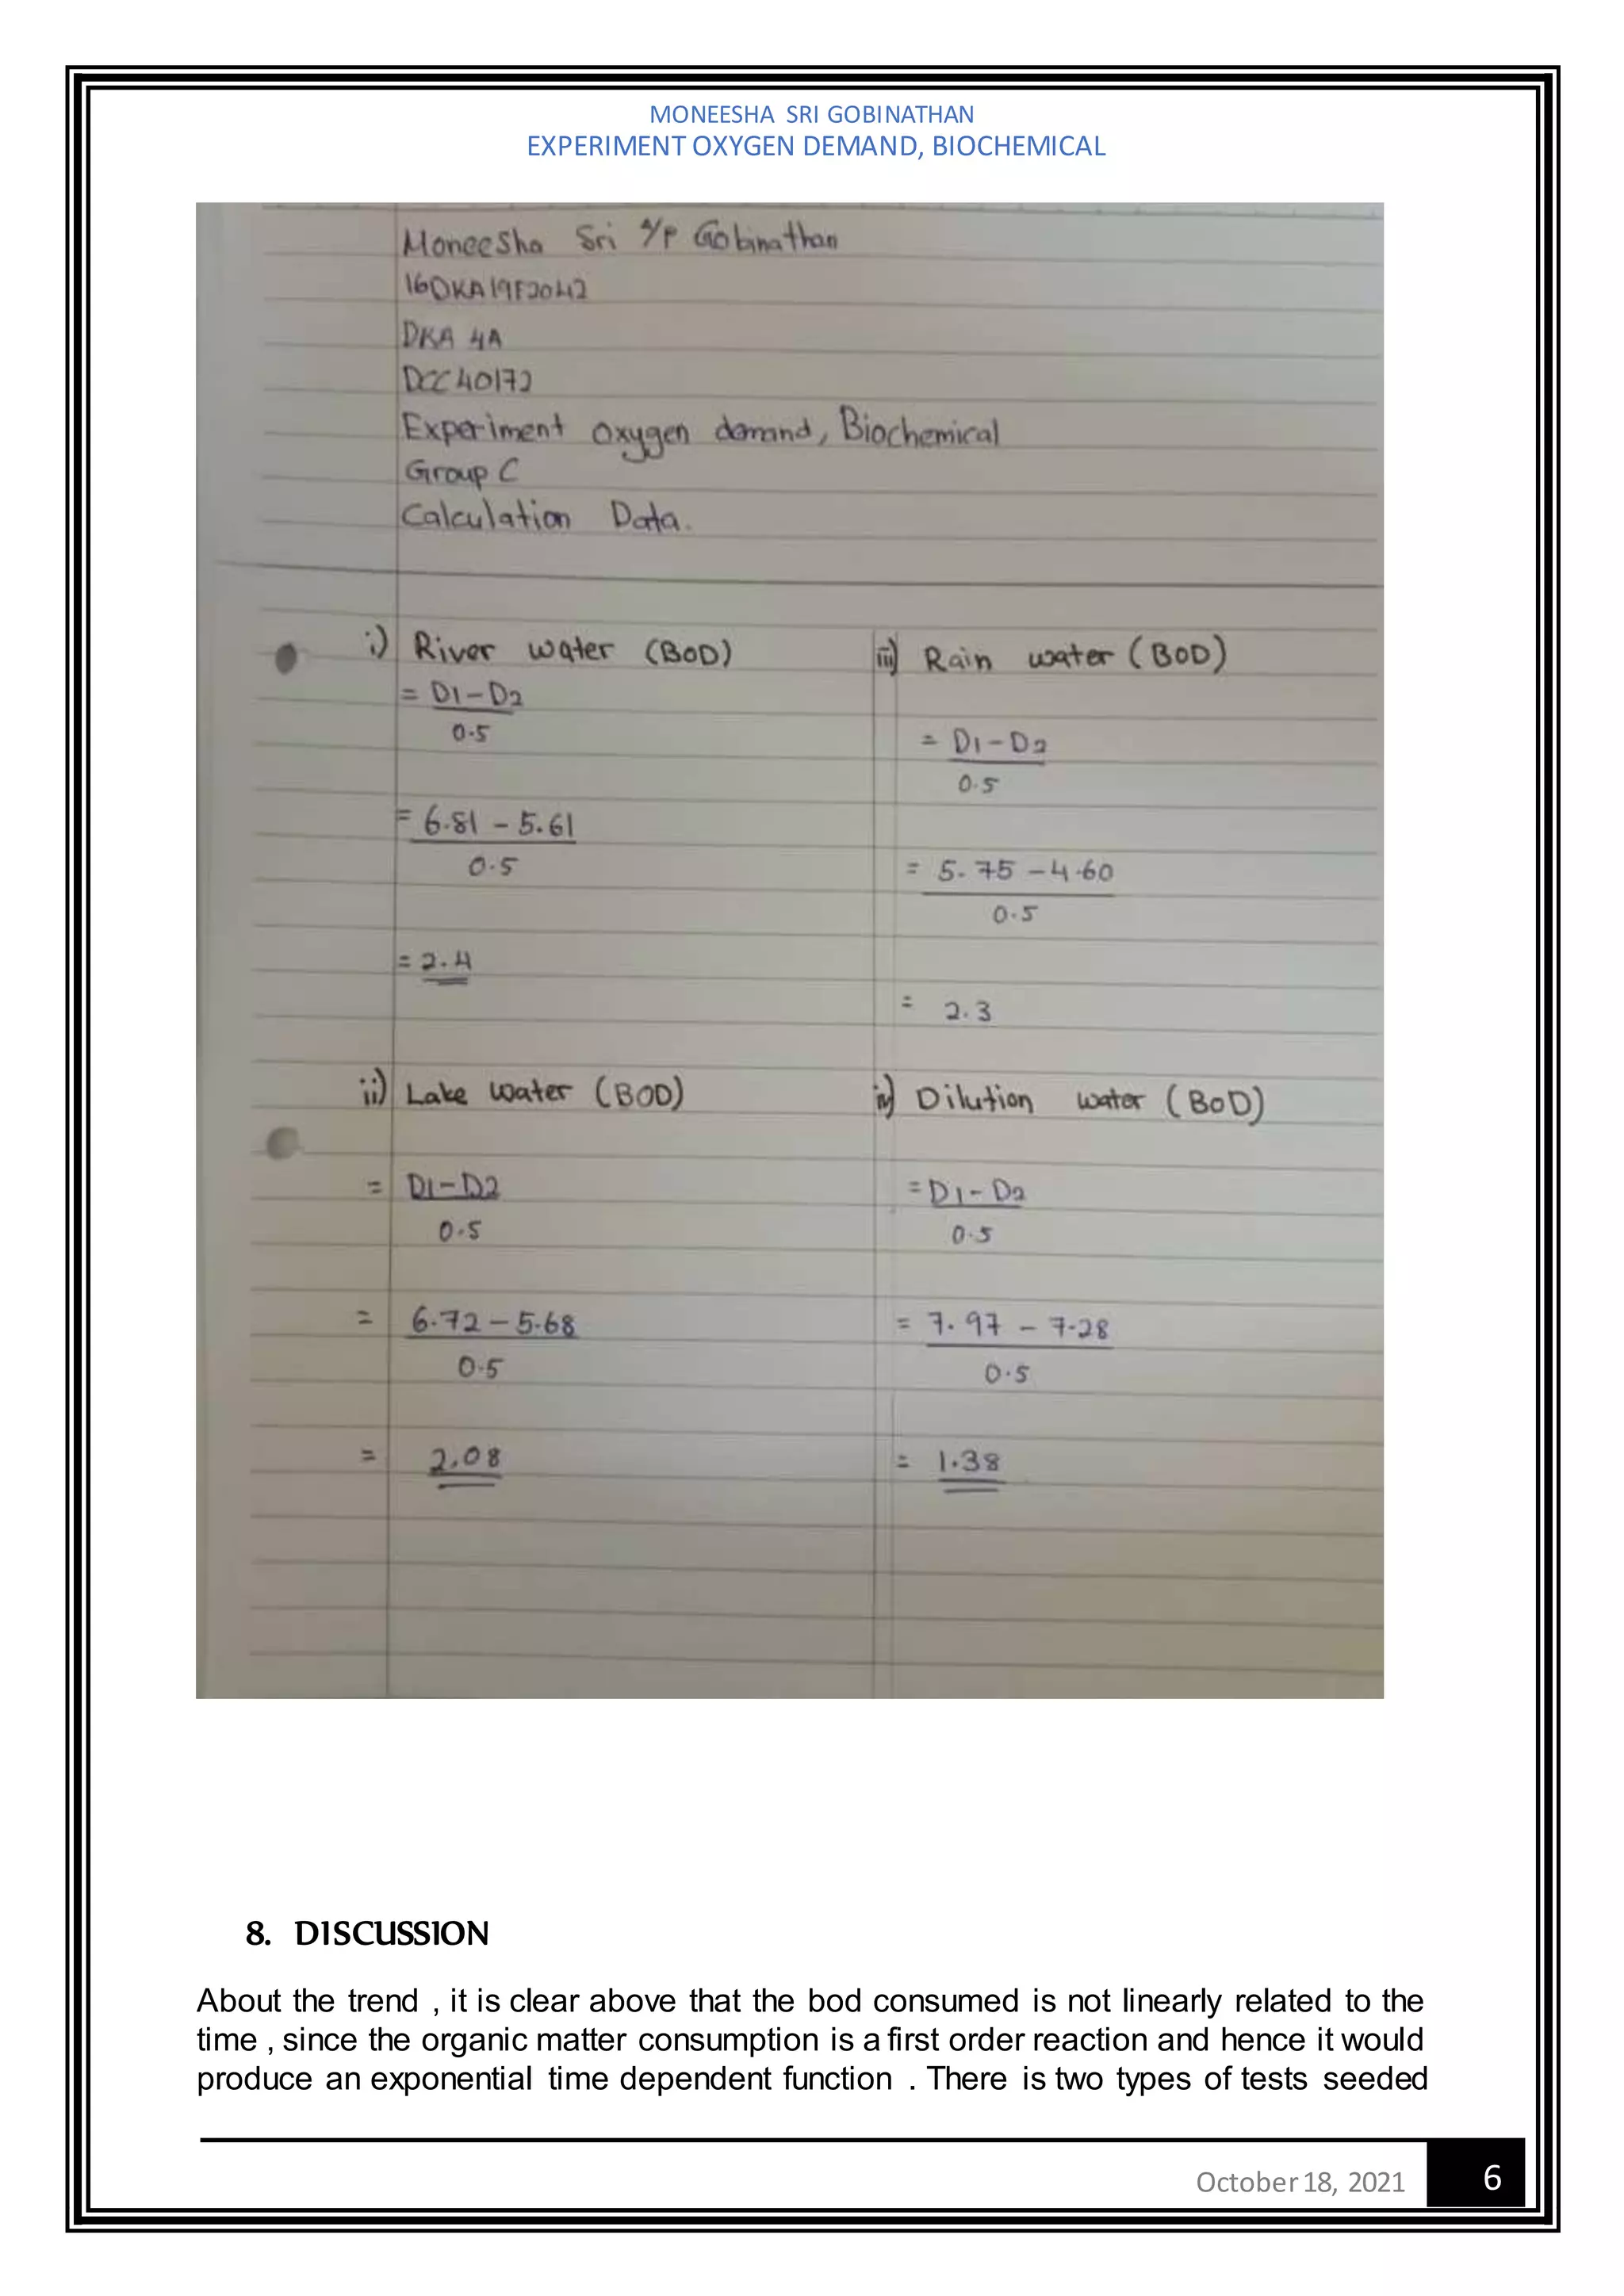 MONEESHA SRI GOBINATHAN
EXPERIMENT OXYGEN DEMAND, BIOCHEMICAL
Moneesha Sri A/P Gobinathan
16DKA19F2042
DKA 4A
DCC40172
Experiment oxygen demand, Biochemical
Group C
Calculation Data.
i) River water (BOD)
= D1-D2
0.5
= 6.81 - 5.61
0.5
= 2.4
ii) Lake water (BOD)
= D1-D2
0.5
= 6.72 - 5.68
0.5
= 2.08
iii) Rain water (BOD)
= D1-D2
0.5
= 5.75 - 4.60
0.5
= 2.3
iv) Dilution water (BOD)
= D1-D2
0.5
= 7.97 - 7.28
0.5
= 1.38
8. DISCUSSION
About the trend , it is clear above that the bod consumed is not linearly related to the
time , since the organic matter consumption is a first order reaction and hence it would
produce an exponential time dependent function . There is two types of tests seeded
October 18, 2021
6